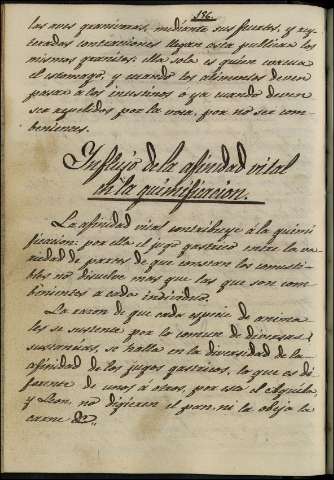 136.
las aves graniveras, mediante sus fuertes, y rey-
teradas contracciones llegan asta pulberizar los
mismos granitos: ella sola es quien evacua
el estomago, y cuando los alimentos deven
pasar a los intestinos o ya cuando deven
ser repelidos por la voca, por no ser con-
benientes.
Influjo de la afinidad vital
en la quimificacion.
La afinidad vital contribuye á la quimi-
ficacion: por ella el jugo gastrico entre la va-
riedad de partes de que constan los comesti-
bles no disuelve mas que las que son com-
benientes a cada individuo.
La razon de que cada especie de anima-
les se sustenta por lo comun de diversas
sustancias, se halla en la diversidad de la
afinidad de los jugos gastricos, lo que es di-
ferente de unos á otros, por eso el Aguila,
y Leon, no digieren el pan, ni la obeja la
carne &c.,,